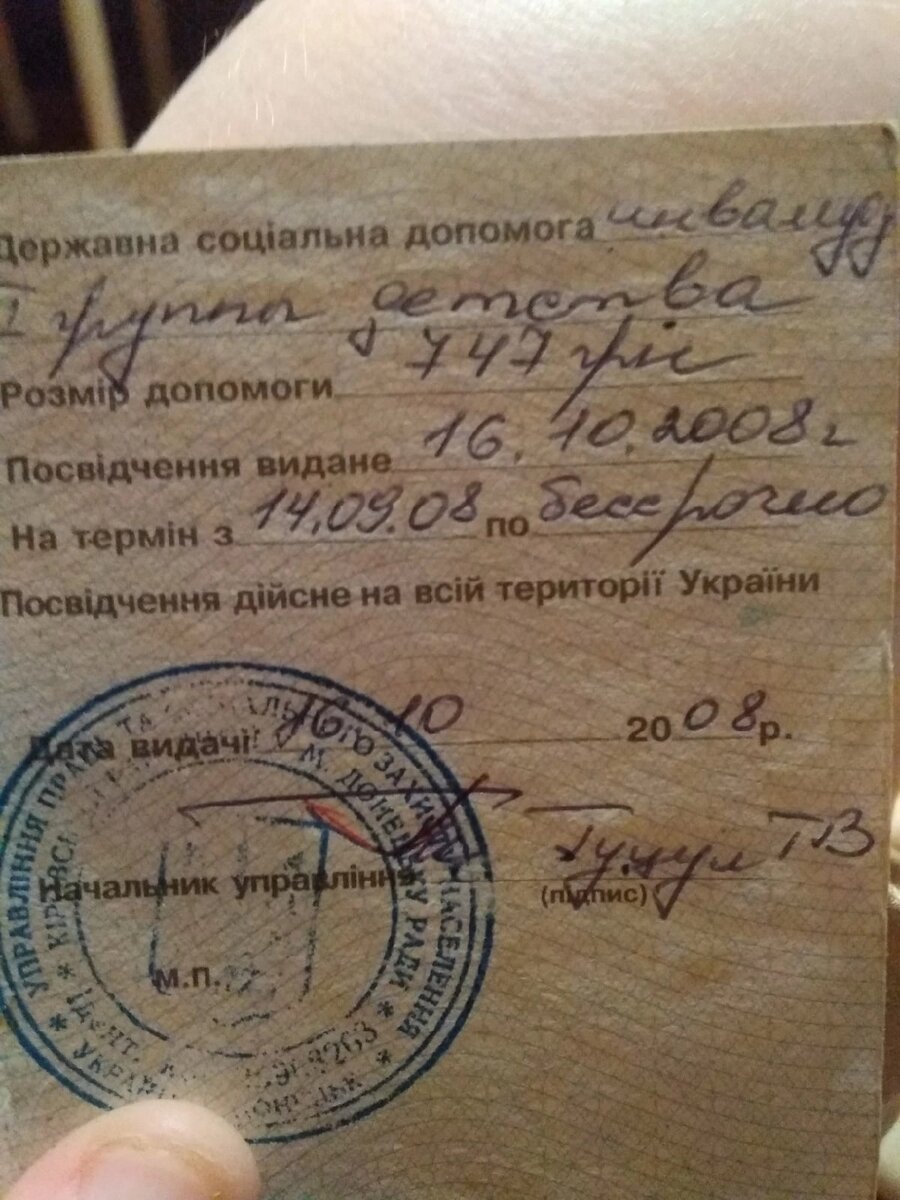 Державна соціальна допомога инвалиду
I группы детства
Розмір допомоги 747 грн
Посвідчення видане 16.10.2008г
На термін з 14.09.08 по бессрочно
Посвідчення дійсне на всій території України
Дата видачі 16 10 2008р.
Начальник управління Гуцул ТВ
(підпис)
М.П.
УПРАВЛІННЯ ПРАЦІ ТА СОЦІАЛЬНОГО ЗАХИСТУ НАСЕЛЕННЯ
КІРОВСЬ М. ДОНЕЦЬКУ РАДИ
ІДЕНТ.
УКРАЇНА